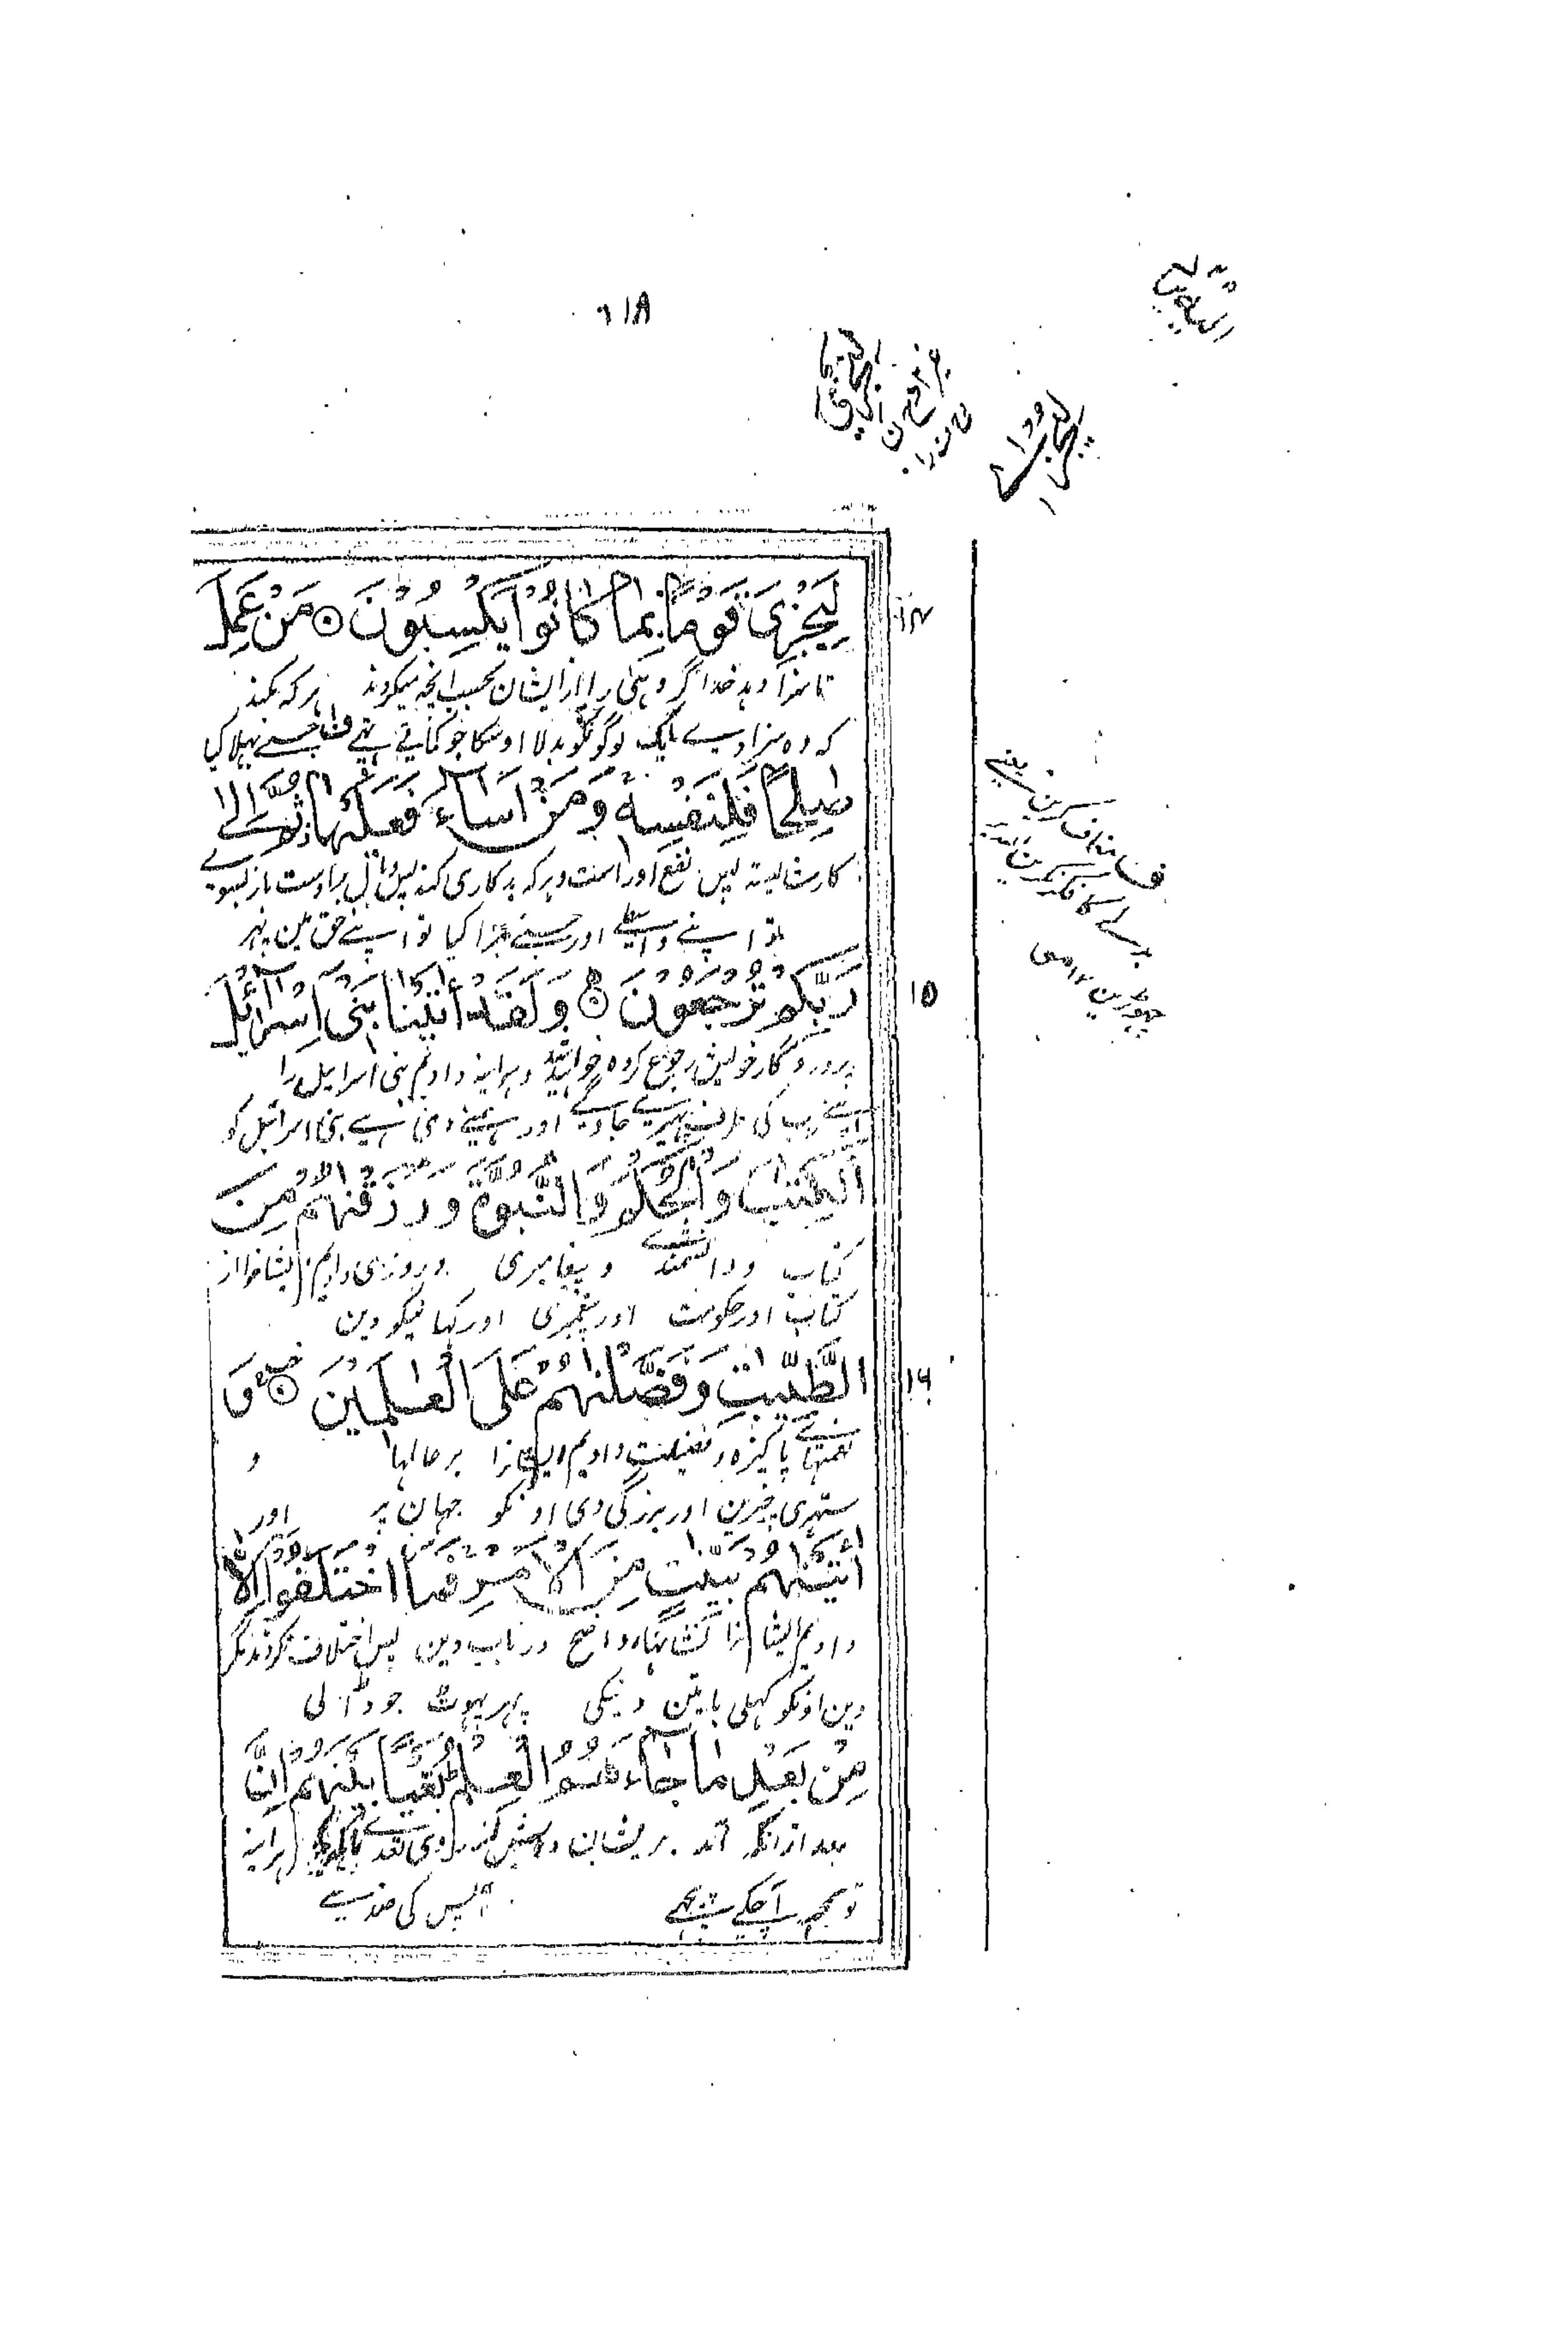 ٦١٨
١٤
لِيَجْزِيَ قَوْمًۢا بِمَا كَانُوْا يَكْسِبُوْنَ ۝ مَنْ عَمِلَ
تا سزا دهد خدا گروهی را از ایشان بحسب آنچه میکردند هر که بکند
که وه سزا دے ایک لوگونکو بدلا اوسکا جو کماتے تہے ف جسنے بہلا کیا
صٰلِحًا فَلِنَفْسِهٖ وَمَنْ اَسَآءَ فَعَلَيْهَا ثُمَّ اِلٰى
کار شایسته پس نفع او راست و هر که بدکاری کند پس وبال بر اوست باز بسوے
تو اپنے واسطے اور جسنے برا کیا تو اپنے حق مین پہر
١٥
رَبِّكُمْ تُرْجَعُوْنَ ۝ وَلَقَدْ اٰتَيْنَا بَنِىْٓ اِسْرَآئِيْلَ
پروردگار خویش رجوع کرده خواهید شد و هر اینه دادیم بنی اسرایل را
اپنے رب کی طرف پہیرے جاوگے اور ہمنے دی ہے بنی اسرائیل کو
الْكِتٰبَ وَالْحُكْمَ وَالنُّبُوَّةَ وَرَزَقْنٰهُمْ مِّنَ
کتاب و دانشمندے و پیغامبری و روزی دادیم ایشانرا از
کتاب اور حکومت اور پیغمبری اور کہانیکو دین
١٦
الطَّيِّبٰتِ وَفَضَّلْنٰهُمْ عَلَى الْعٰلَمِيْنَ ۝ وَ
نعمتهاے پاکیزه و فضیلت دادیم ایشانرا بر عالمها و
ستہری چیزین اور بزرگی دی اونکو جہان پر اور
اٰتَيْنٰهُمْ بَيِّنٰتٍ مِّنَ الْاَمْرِ فَمَا اخْتَلَفُوْٓا اِلَّا
دادیم ایشانرا نشانهاء واضح در باب دین پس اختلاف نکردند مگر
دین اونکو کہلی باتین دینکی پہر پہوٹ جو ڈالی
مِنْۢ بَعْدِ مَا جَآءَهُمُ الْعِلْمُ بَغْيًاۢ بَيْنَهُمْ اِنَّ
بعد از انکه آمد بریشان دانش از روی تعدے هر اینه
تو سمجھ آ چکے پیچہے آپس کی ضد سے
ف معاف کرین یعنے
بدلے کا فکر نکرین
چہوڑین